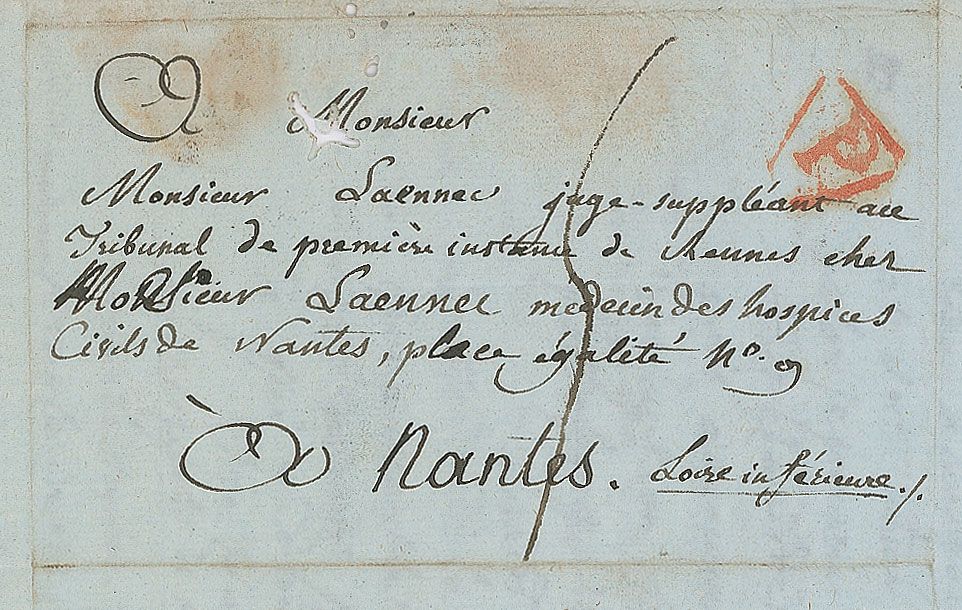 A Monsieur
Monsieur Laennec juge-suppléant au
Tribunal de première instance de Rennes chez
Monsieur Laennec medecin des hospices
Civils de Nantes, place égalité No. 9
à Nantes. Loire inférieure ./.
P